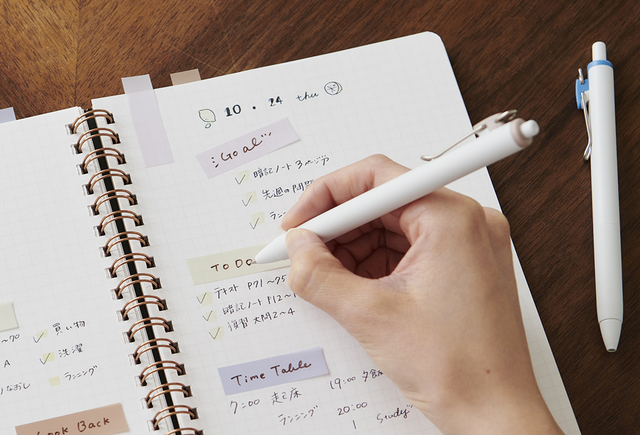 買い物
洗濯
ランニング
Look Back
10・24 thu
Goal
暗記ノート 3ページ
先週の問題
TO DO
テキスト P71〜75
暗記ノート P12〜
復習 大問2〜4
Time Table
7:00 起床
ランニング
19:00 夕飯
20:00
Study